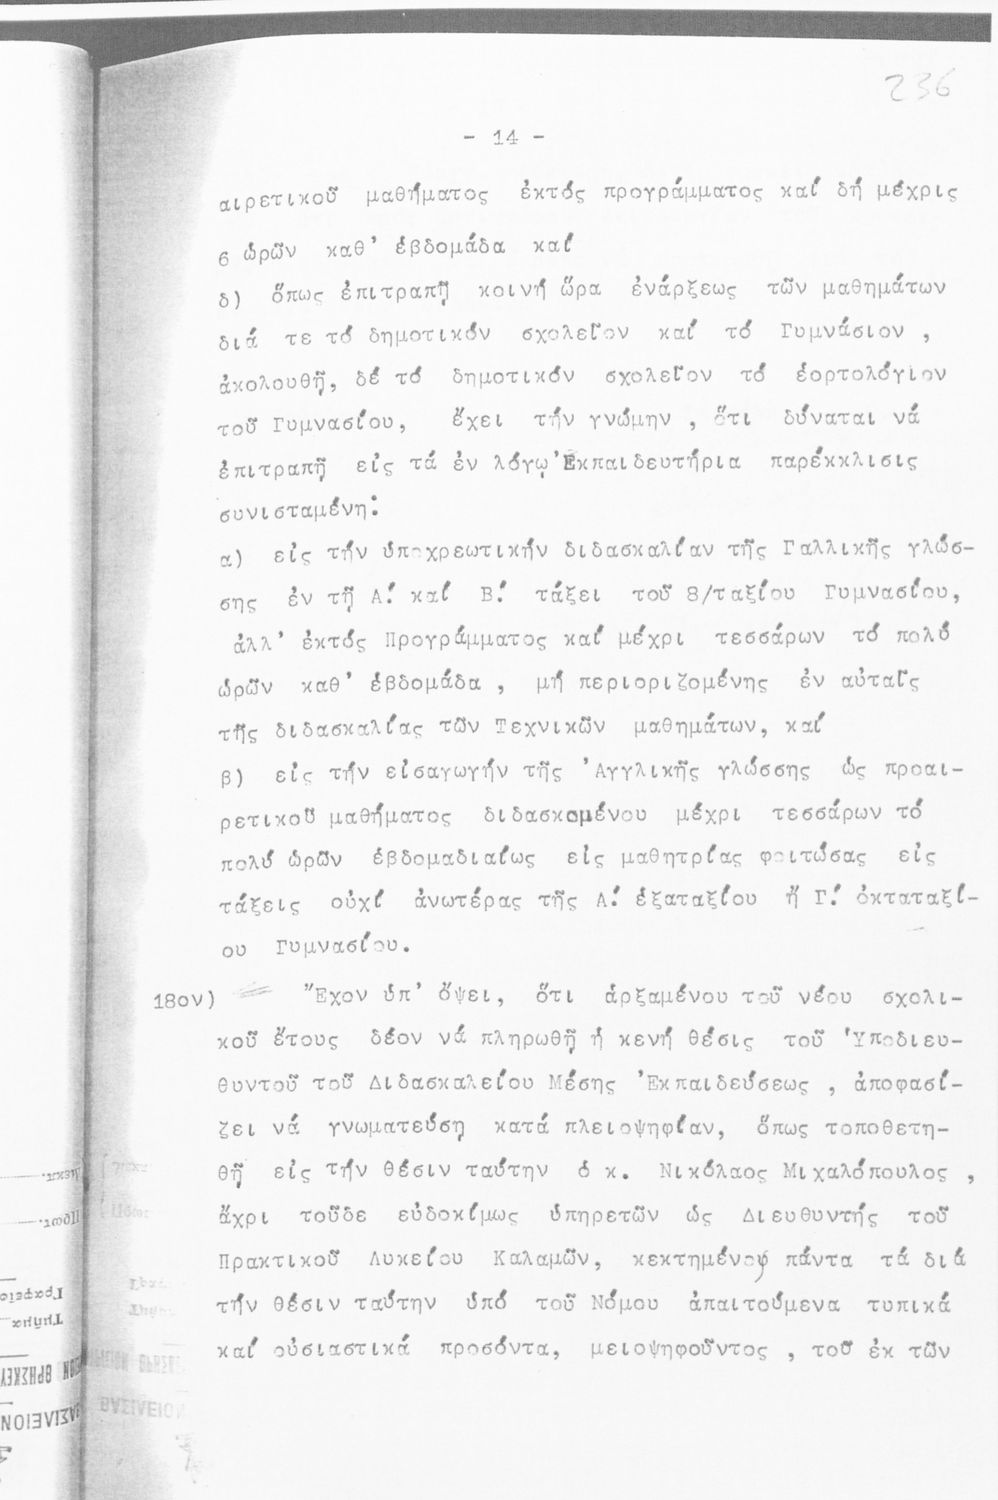 236
- 14 -
αιρετικοῦ μαθήματος ἐκτός προγράμματος καί δή μέχρις
6 ὡρῶν καθ' ἑβδομάδα καί
δ) ὅπως ἐπιτραπῇ κοινή ὥρα ἐνάρξεως τῶν μαθημάτων
διά τε τό δημοτικόν σχολεῖον καί τό Γυμνάσιον ,
ἀκολουθῇ, δέ τό δημοτικόν σχολεῖον τό ἑορτολόγιον
τοῦ Γυμνασίου, ἔχει τήν γνώμην , ὅτι δύναται νά
ἐπιτραπῇ εἰς τά ἐν λόγῳ Ἐκπαιδευτήρια παρέκκλισις
συνισταμένη:
α) εἰς τήν ὑποχρεωτικήν διδασκαλίαν τῆς Γαλλικῆς γλώσ-
σης ἐν τῇ Α! καί Β! τάξει τοῦ 8/ταξίου Γυμνασίου,
ἀλλ' ἐκτός Προγράμματος καί μέχρι τεσσάρων τό πολύ
ὡρῶν καθ' ἑβδομάδα , μή περιοριζομένης ἐν αὐταῖς
τῆς διδασκαλίας τῶν Τεχνικῶν μαθημάτων, καί
β) εἰς τήν εἰσαγωγήν τῆς Ἀγγλικῆς γλώσσης ὡς προαι-
ρετικοῦ μαθήματος διδασκομένου μέχρι τεσσάρων τό
πολύ ὡρῶν ἑβδομαδιαίως εἰς μαθητρίας φοιτώσας εἰς
τάξεις οὐχί ἀνωτέρας τῆς Α! ἑξαταξίου ἤ Γ! ὀκταταξί-
ου Γυμνασίου.
18ον) Ἔχον ὑπ' ὄψει, ὅτι ἀρξαμένου τοῦ νέου σχολι-
κοῦ ἔτους δέον νά πληρωθῇ ἡ κενή θέσις τοῦ Ὑποδιευ-
θυντοῦ τοῦ Διδασκαλείου Μέσης Ἐκπαιδεύσεως , ἀποφασί-
ζει νά γνωματεύσῃ κατά πλειοψηφίαν, ὅπως τοποθετη-
θῇ εἰς τήν θέσιν ταύτην ὁ κ. Νικόλαος Μιχαλόπουλος ,
ἄχρι τοῦδε εὐδοκίμως ὑπηρετῶν ὡς Διευθυντής τοῦ
Πρακτικοῦ Λυκείου Καλαμῶν, κεκτημένος πάντα τά διά
τήν θέσιν ταύτην ὑπό τοῦ Νόμου ἀπαιτούμενα τυπικά
καί οὐσιαστικά προσόντα, μειοψηφοῦντος , τοῦ ἐκ τῶν